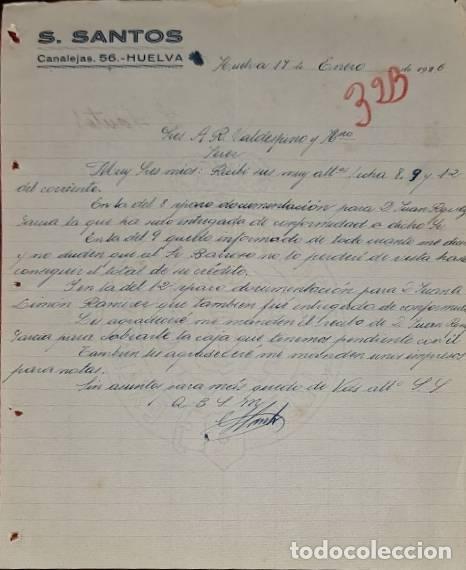 S. SANTOS
Canalejas, 56.-HUELVA
Huelva 17 de Enero de 1926
32B
Sres A. R. Valdespino y Hno
Jerez
Muy Sres mios: Recibi sus muy attas fecha 8, 9 y 12
del corriente.
En la del 8 documentación para D. Juan
Garcia la que ha sido entregada de conformidad a dicho Sr
En la del 9 quedo informado de todo cuanto me dicen
y no duden que al Sr no lo perderé de vista hasta
conseguir el total de su crédito.
Y en la del 12 documentación para D. Juan A
Limon Ramirez que tambien fué entregada de conformidad
Les agradeceré me manden el recibo de D. Juan
Garcia para la caja que tenemos pendiente con él
Tambien les agradeceré me manden unos impresos
para notas.
Sin asuntos para más quedo de Vds attº S. S.
todocoleccion.net